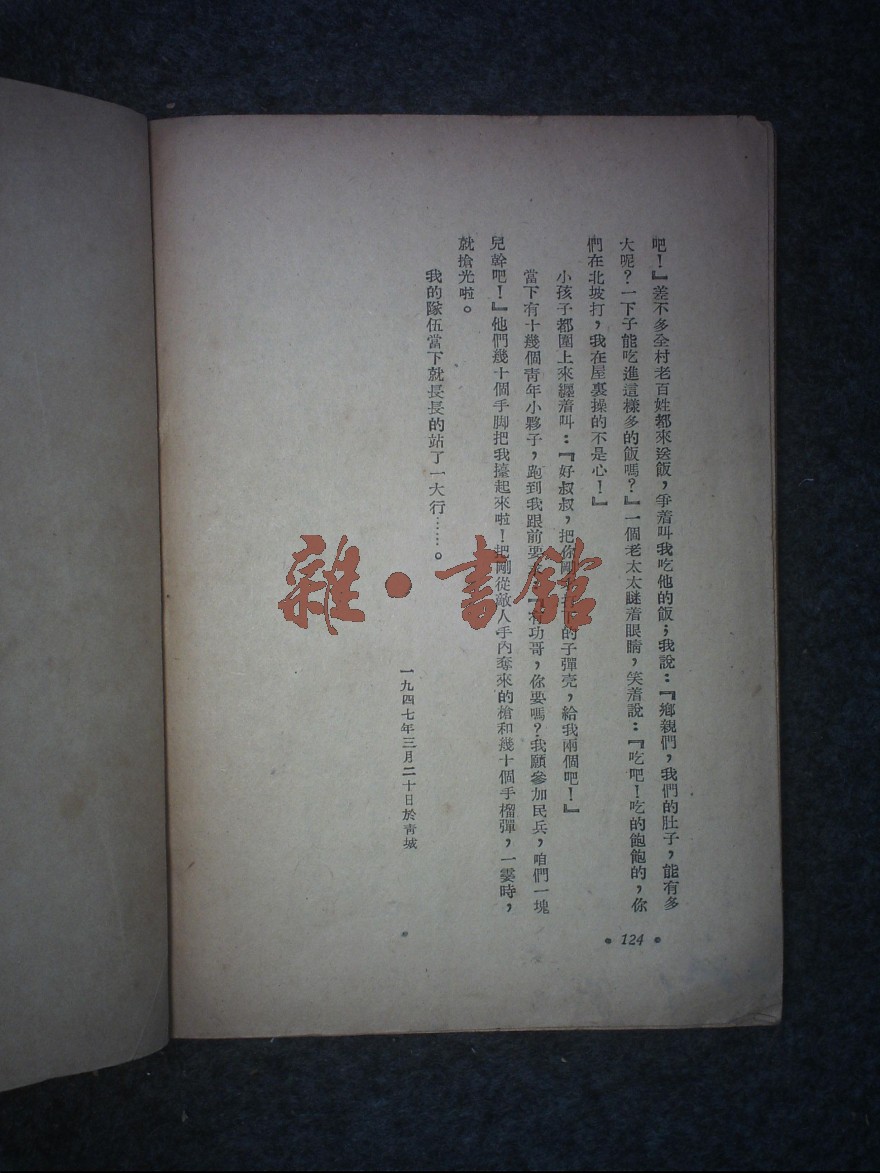 吧！』差不多全村老百姓都來送飯，爭着叫我吃他的飯；我說：『鄉親們，我們的肚子，能有多
大呢？一下子能吃進這樣多的飯嗎？』一個老太太瞇着眼睛，笑着說：『吃吧！吃的飽飽的，你
們在北坡打，我在屋裏操的不是心！』
小孩子都圍上來纏着叫：『好叔叔，把你剛才打下的子彈壳，給我兩個吧！』
當下有十幾個青年小夥子，跑到我跟前要求：『有功哥，你要嗎？我願參加民兵，咱們一塊
兒幹吧！』他們幾十個手脚把我擡起來啦！把剛從敵人手內奪來的槍和幾十個手榴彈，一霎時，
就搶光啦。
我的隊伍當下就長長的站了一大行……。
一九四七年三月二十日於青城
• 124 •
雜•書館